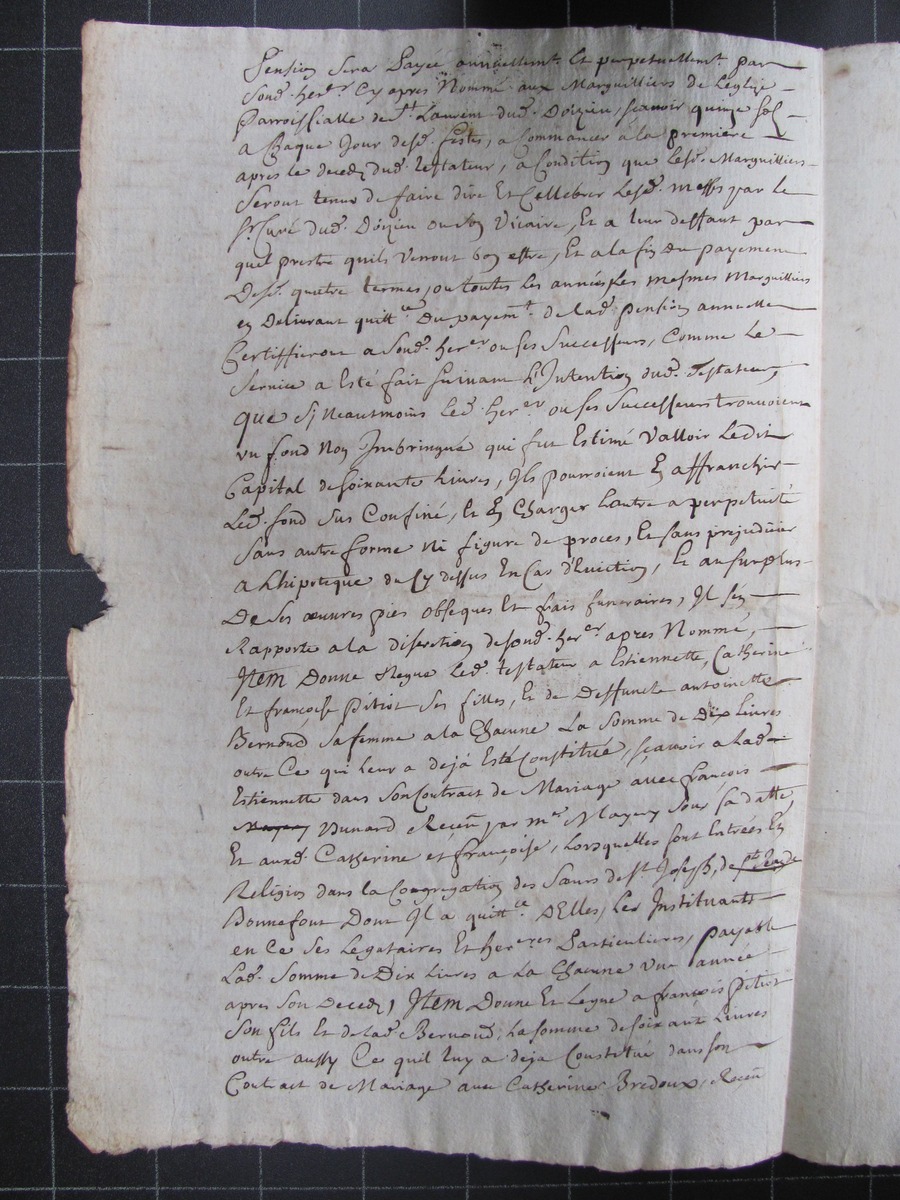 Pension sera Payée annuellemt. Et perpetuellemt. par
sond. herer. Cy apres Nommé aux Marguilliers de Leglize
Parroissialle de St. Laurent dud. Doizieu, scavoir quinze sol
a Chaque Jour desd. festes, a Commancer a la premiere
apres le deced dud. testateur, a Condition que lesd. Marguilliers
Seront tenus de faire dire Et Cellebrer lesd. messes par le
sr. Curé dud. Doizieu ou son Vicaire, Et a leur deffaut par
quel prestre quils Verront bon estre, Et a la fin du payement
desd. quatre termes, ou toutes les années les mesmes Marguilliers
en Delivrant quittce. Du payemt. de lad. pension annuelle
Certiffieront a sond. herer. ou ses Successeurs, Comme le
Service a Esté fait suivant L'Intention dud. Testateur,
que si Neautmoins led. herer. ou ses Successeurs trouvoient
un fond Non Imbringué qui fut Estimé Valloir Ledit
Capital de soixante Livres, Ils pourroient En affranchir
Led. fond sus Confiné, Et En Charger Lautre a perpetuité
sans autre forme Ni figure de proces, Et sans prejudicier
a Lhipoteque du Cy dessus En Cas d'Eviction, Et au surplus
De ses œuvres pies obseques Et frais funeraires, Il s'en
Rapporte a la discretion de sond. herer. apres Nommé,
Item Donne Legue led. testateur a Estiennette, Catherine
Et françoise Pitiot ses filles, Et de Deffuncte antoinette
Bernoud sa femme a la Chacune La somme de Dix livres
outre Ce qui leur a dejà Esté Constitué, scavoir a Lad.
Estiennette dans son Contract de Mariage avec françois
Dunard Receu par me. Mayeu sous sa datte,
Et auxd. Catherine et françoise, Lorsquelles sont Entrées En
Religion dans la Congregation des Sœurs de St. Joseph, de
Bonnefont Dont Il a quittce. D'Elles, Les Instituants
en Ce ses Legataires Et hereres Particulieres, payable
Lad. Somme de Dix Livres a La Chacune Une année
apres son Deced, Item Donne Et Legue a françois Pitiot
son fils Et de lad. Bernoud, La somme de soixante Livres
outre aussy Ce quil luy a deja Constitué dans son
Contract de Mariage avec Catherine Bredoux, Receu